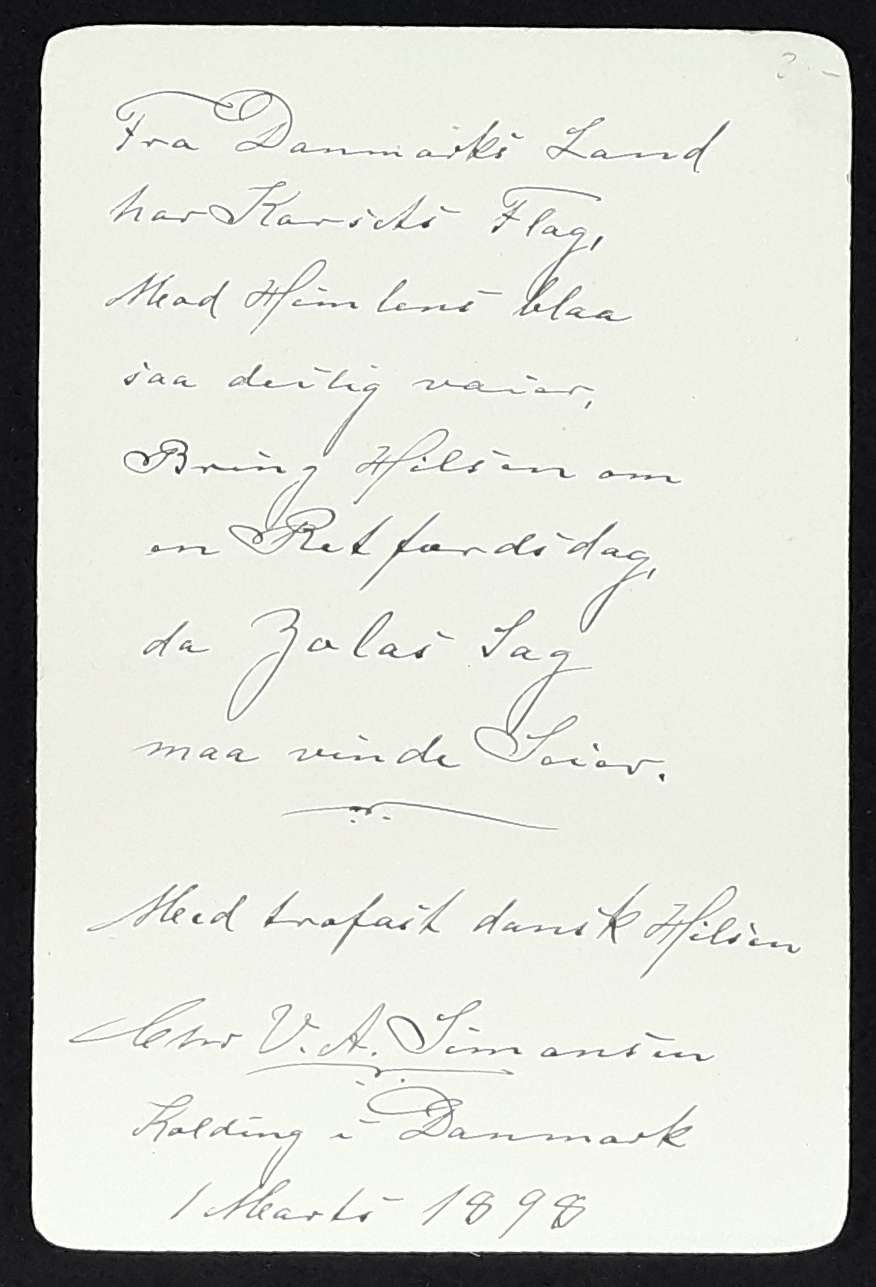 Fra Danmarks Land
har Korsets Flag,
Mod Himlens blaa
saa deilig vaier,
Bring Hilsen om
en Retfærdsdag,
da Zolas Sag
maa vinde Seier.
Med trofast dansk Hilsen
Chr V. A. Simonsen
Kolding i Danmark
1 Marts 1898